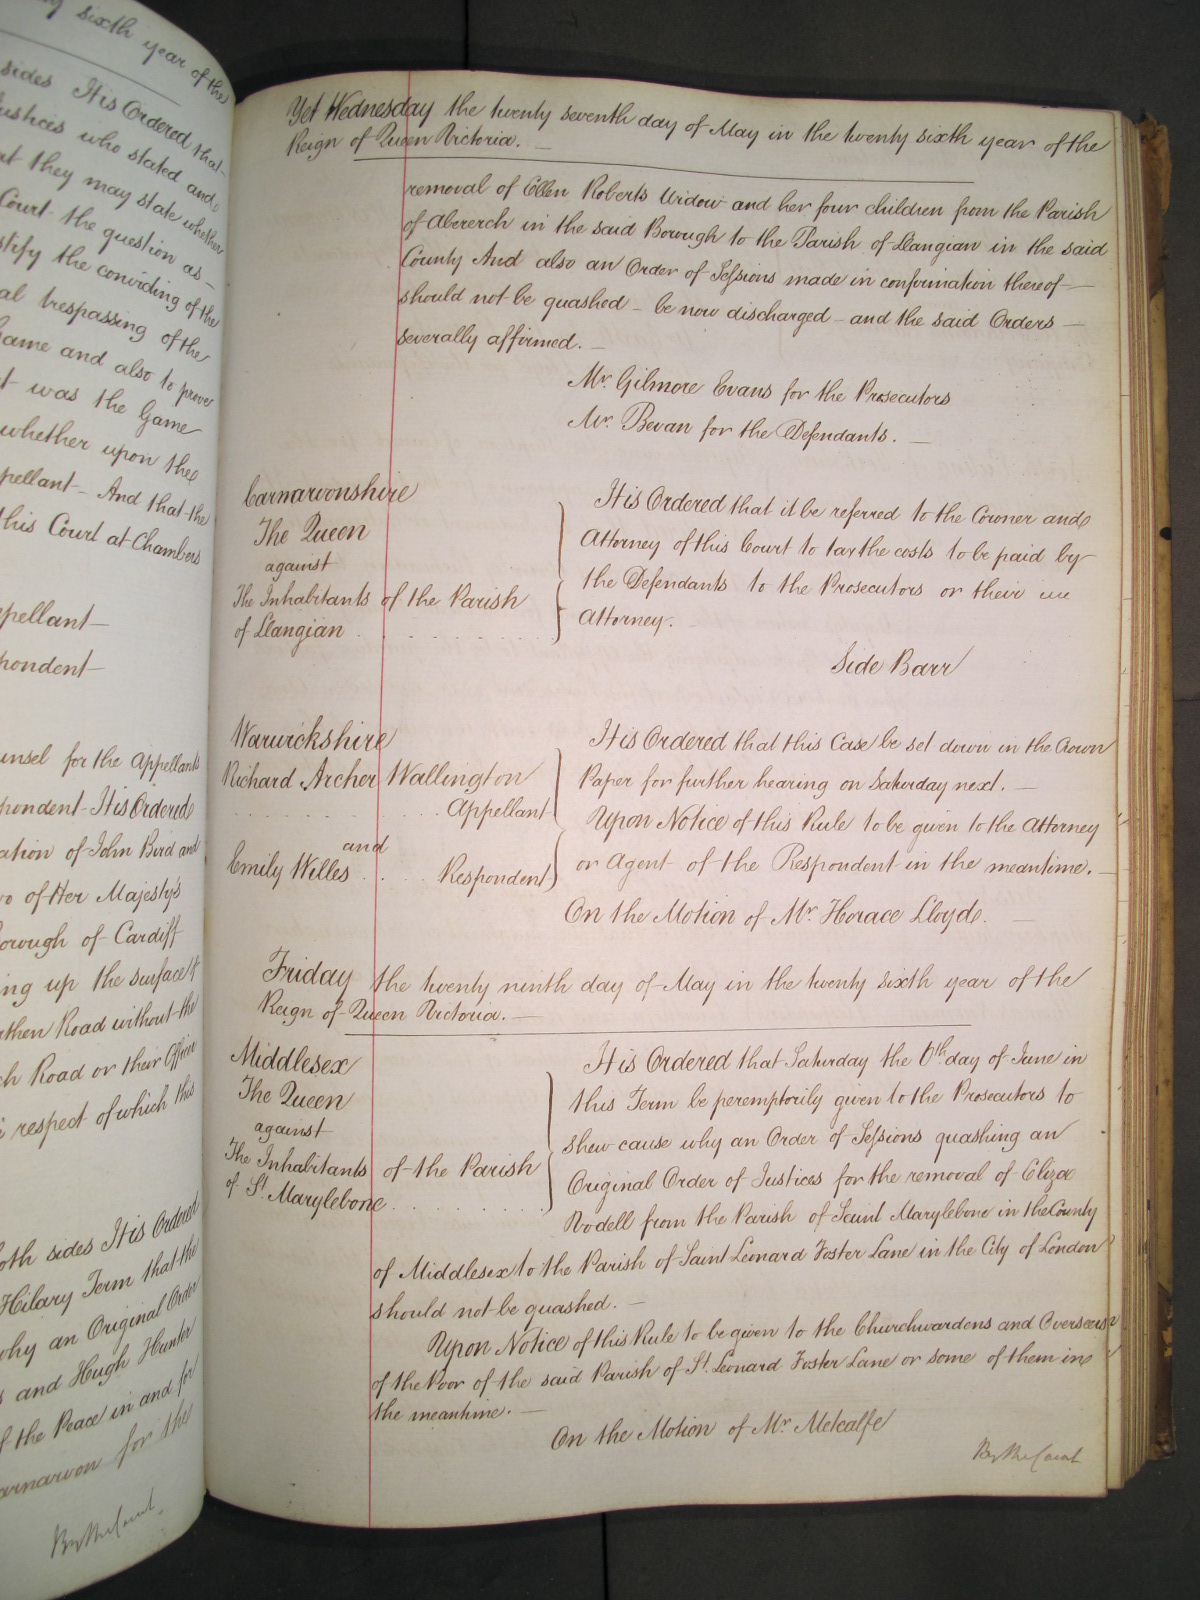 ty sixth year of the
sides It is Ordered that
Justices who stated and
at they may state whether
Court the question as
stify the convicting of the
al trespassing of the
Game and also to prove
t was the Game
whether upon the
ppellant - And that the
this Court at Chambers
ppellant
pondent
unsel for the Appellants
pondent - It is Ordered
ation of John Bird and
wo of Her Majesty's
orough of Cardiff
ing up the surface of
rthen Road without the
ch Road or their Office
respect of which this
oth sides It is Ordered
Hilary Term that the
why an Original Order
s and Hugh Hunter
f the Peace in and for
arnarvon for the
By the Court.
Yet Wednesday the twenty seventh day of May in the twenty sixth year of the
Reign of Queen Victoria. —
removal of Ellen Roberts Widow and her four children from the Parish
of Abererch in the said Borough to the Parish of Llangian in the said
County And also an Order of Sessions made in confirmation thereof —
should not be quashed - be now discharged - and the said Orders —
severally affirmed. —
Mr. Gilmore Evans for the Prosecutors
Mr. Bevan for the Defendants. —
Carnarvonshire
The Queen
against
The Inhabitants of the Parish
of Llangian
It is Ordered that it be referred to the Coroner and
Attorney of this Court to tax the costs to be paid by
the Defendants to the Prosecutors or their
Attorney.
Side Barr
Warwickshire
Richard Archer Wallington
Appellant
and
Emily Willes . . . Respondent
It is Ordered that this Case be set down in the Crown
Paper for further hearing on Saturday next. —
Upon Notice of this Rule to be given to the Attorney
or Agent of the Respondent in the meantime. —
On the Motion of Mr. Horace Lloyd. —
Friday the twenty ninth day of May in the twenty sixth year of the
Reign of Queen Victoria. —
Middlesex
The Queen
against
The Inhabitants of the Parish
of St. Marylebone
It is Ordered that Saturday the 6th day of June in
this Term be peremptorily given to the Prosecutors to
shew cause why an Order of Sessions quashing an
Original Order of Justices for the removal of Eliza
Rodell from the Parish of Saint Marylebone in the County
of Middlesex to the Parish of Saint Leonard Foster Lane in the City of London
should not be quashed. —
Upon Notice of this Rule to be given to the Churchwardens and Overseers
of the Poor of the said Parish of St. Leonard Foster Lane or some of them in
the meantime. —
On the Motion of Mr. Metcalfe
By the Court